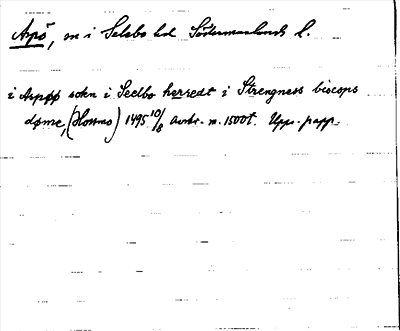 Aspö, sn i Selebo hd Södermanlands l.
i Aspøø sokn i Seelbo herredt i Strengness biscops
døme, (Hossmo) 1495 10/8 avskr. m. 1500t. Upps. papp.